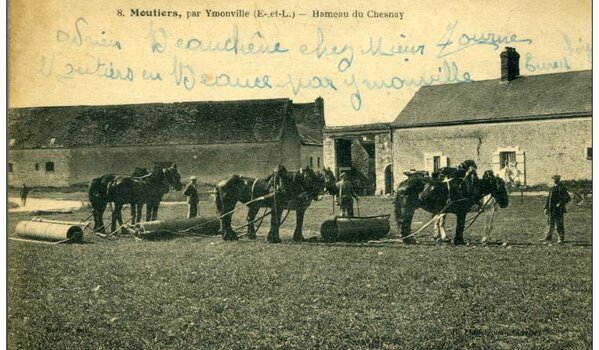 8. Moutiers, par Ymonville (E.-et-L.) — Hameau du Chesnay
Adrien Beauchêne chez Mieur Tourne
Moutiers en Beauce par Ymonville
Eure et Loir